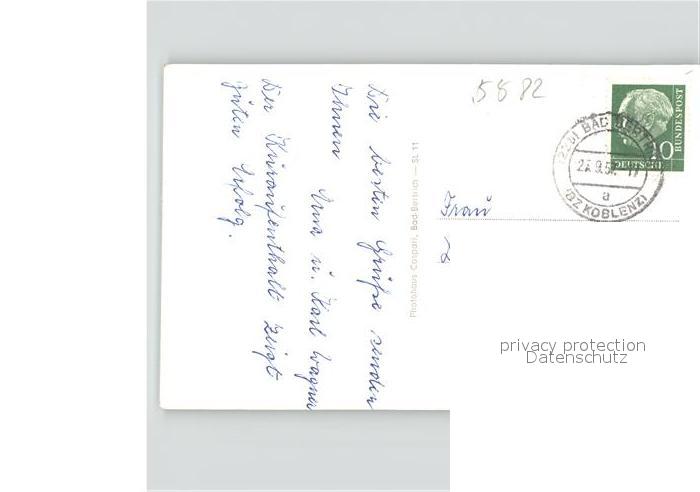 Die besten Grüße senden
Ihnen
Anna u. Karl Wagner
Der Kuraufenthalt zeigt
guten Erfolg.
Photohaus Caspari, Bad-Bertrich — SL 11
5882
10
DEUTSCHE
BUNDESPOST
BAD BERTR
a
(BZ KOBLENZ)
Frau
privacy protection
Datenschutz